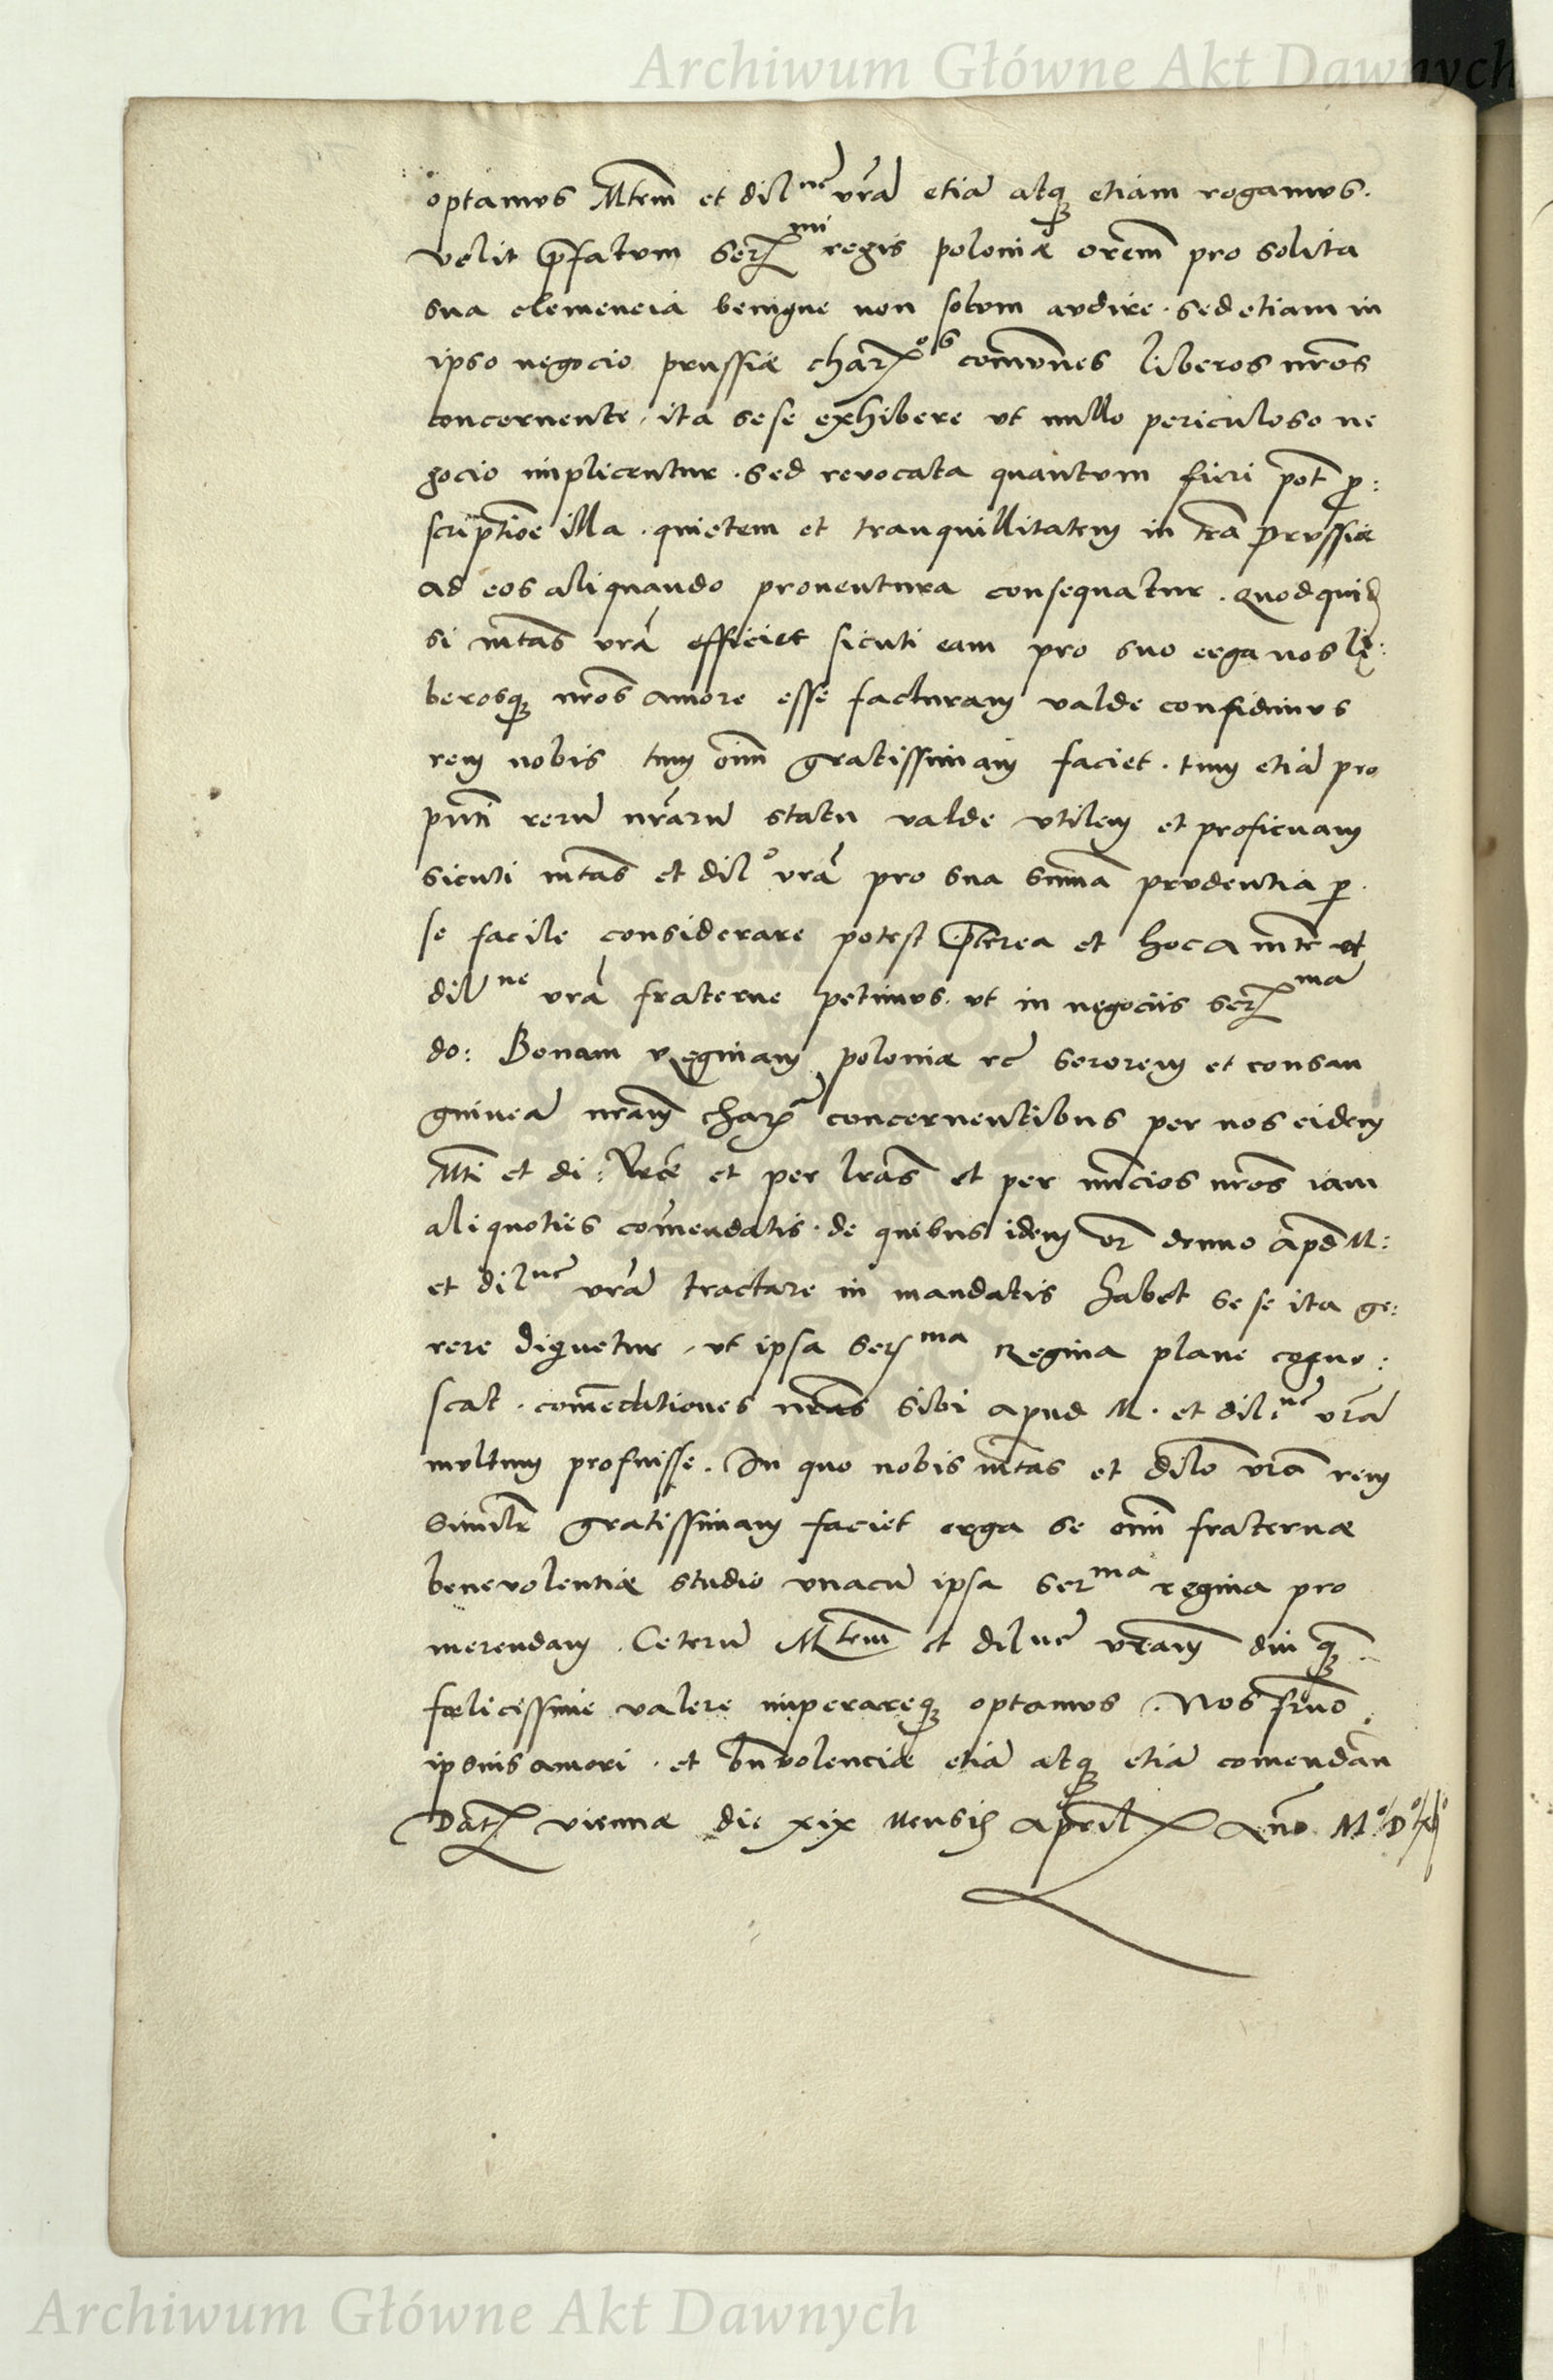 Archiwum Główne Akt Dawnych
optamus Mtem et dilne vrã etiã atq etiam rogamus.
velit p̃fatum Sermi regis poloniæ orem̃ pro solita
sua clemencia benigne non solum audire. sed etiam in
ipso negocio prussiæ charos com̃unes liberos nr̃os
concernente, ita sese exhibere ut nullo periculoso ne
gocio implicentur. sed revocata quantum fieri pot̃ p:
scriptiõe illa. quietem et tranquillitatem in trã prussiæ
ad eos aliquando proventura consequatur. Quodquid
si mtãs vrã efficiet sicuti eam pro suo erga nos li:
berosq nr̃os amore esse facturam valde confidimus
rem nobis tum om̃ gratissimam faciet. tum etiã pro
pñti rerũ nrãrũ statu valde utilem et proficuam
sicuti mtãs et dilo vrã pro sua summa prudentia p
se facile considerare potest p̃terea et hoc a mte et
dilne vrã fraterne petimus. ut in negociis Serma
do: Bonam Reginam poloniæ rc̃ sororem et consan
guineã nrãm char concernentibus per nos eidem
Mti et di: Vræ et per lrãs et per nuncios nr̃os iam
aliquoties com̃endatis. de quibus idem or̃ denuo apd M:
et dilne vrã tractare in mandatis habet se se ita ge:
rere dignetur, ut ipsa Serma Regina plane cogno:
scat. com̃endationes nrãs sibi apud M. et dil:ne vrã
multum profuisse. In quo nobis mtãs et dilo vrã rem
similẽ gratissimam faciet erga se om̃ fraternæ
benevolentiæ studio unacũ ipsa Serma regina pro
merendam. Ceterũ Mtem et dilne vrãm diu q
fœlicissime valere imperareq optamus. Nos
ipsius amori. et bñvolenciæ etiã atq etiã comendan
Dat viennæ die xix Mensis April Año M.D.
Archiwum Główne Akt Dawnych